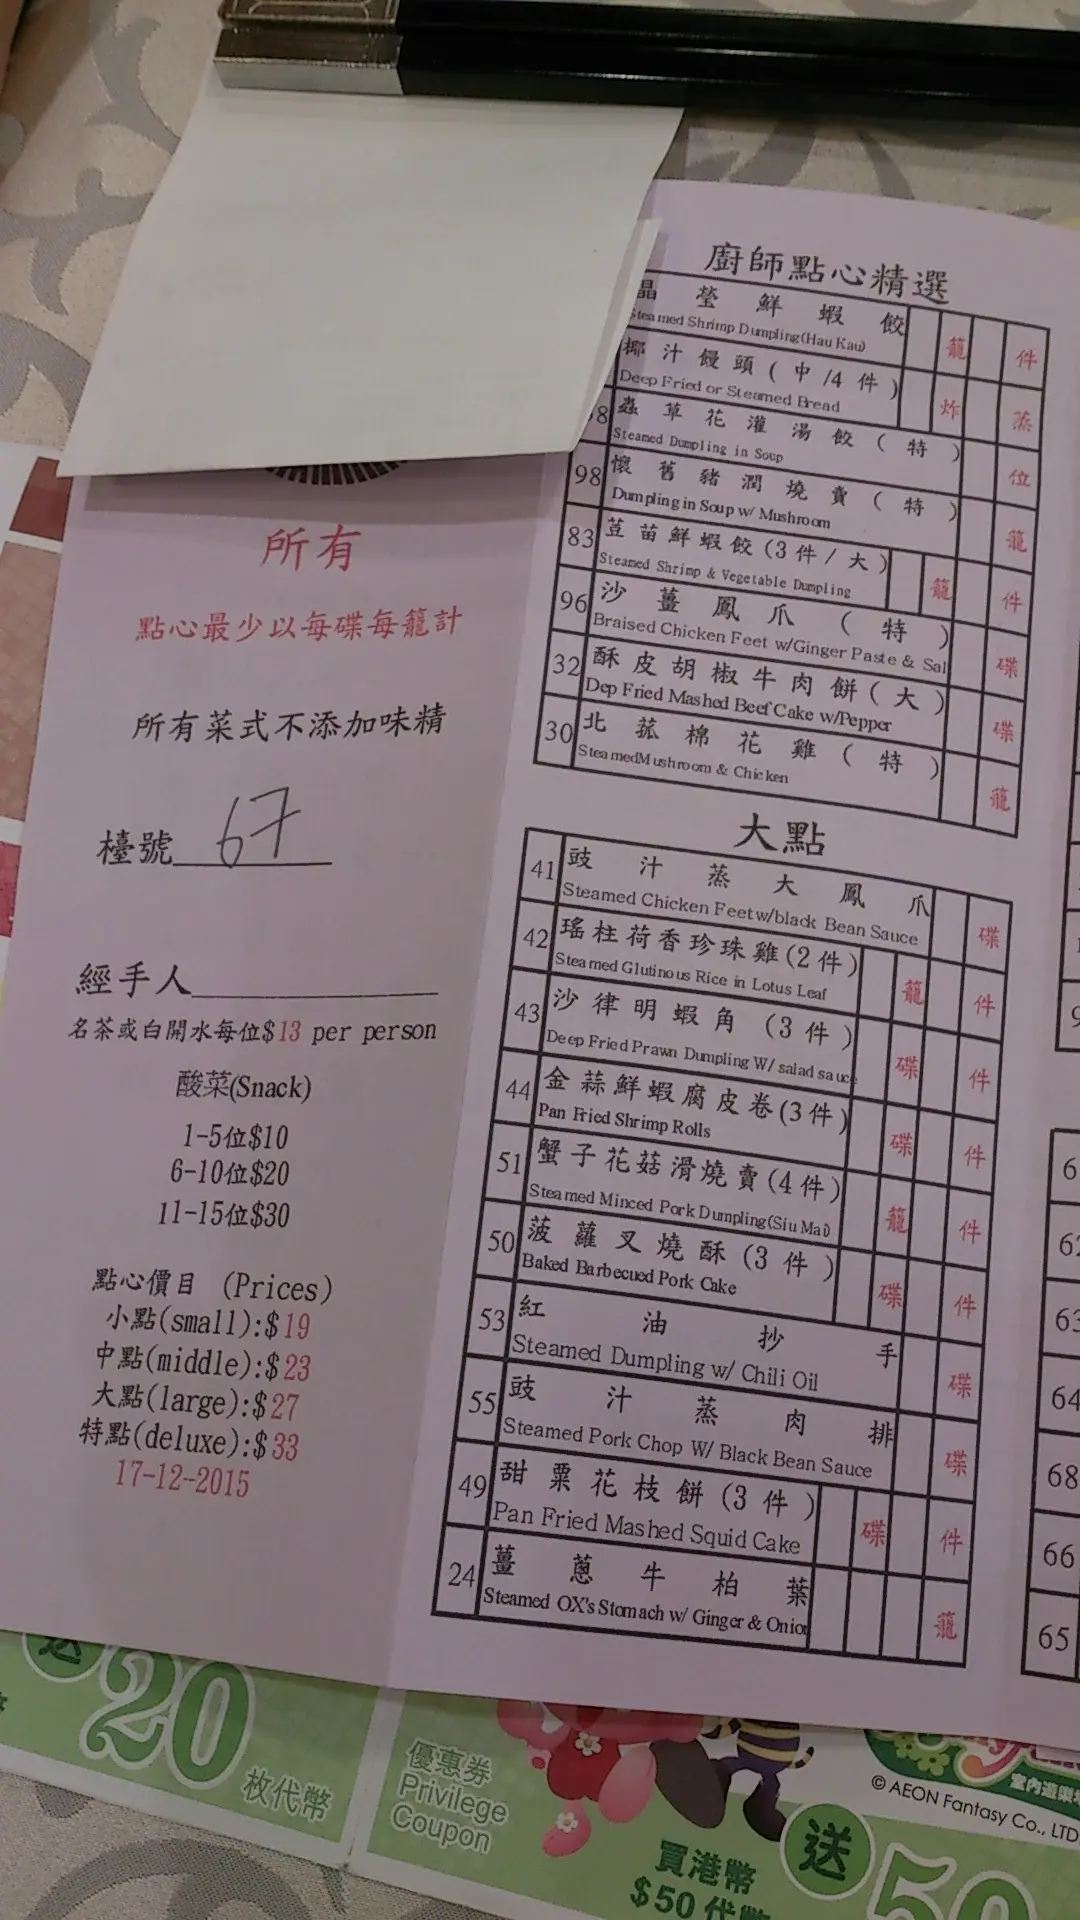 所有
點心最少以每碟每籠計
所有菜式不添加味精
檯號 67
經手人
名茶或白開水每位$13 per person
酸菜(Snack)
1-5位$10
6-10位$20
11-15位$30
點心價目 (Prices)
小點(small):$19
中點(middle):$23
大點(large):$27
特點(deluxe):$33
17-12-2015
廚師點心精選
晶瑩鮮蝦餃 籠 件
Steamed Shrimp Dumpling(Hau Kau)
椰汁饅頭(中/4件) 炸 蒸
Deep Fried or Steamed Bread
8 蟲草花灌湯餃(特) 位
Steamed Dumpling in Soup
98 懷舊豬潤燒賣(特) 籠
Dumpling in Soup w/ Mushroom
83 荳苗鮮蝦餃(3件/大) 籠 件
Steamed Shrimp & Vegetable Dumpling
96 沙薑鳳爪(特) 碟
Braised Chicken Feet w/Ginger Paste & Sal
32 酥皮胡椒牛肉餅(大) 碟
Dep Fried Mashed Beef Cake w/Pepper
30 北菰棉花雞(特) 籠
SteamedMushroom & Chicken
大點
41 豉汁蒸大鳳爪 碟
Steamed Chicken Feetw/black Bean Sauce
42 瑤柱荷香珍珠雞(2件) 籠 件
Steamed Glutinous Rice in Lotus Leaf
43 沙律明蝦角(3件) 碟 件
Deep Fried Prawn Dumpling W/ salad sauce
44 金蒜鮮蝦腐皮卷(3件) 碟 件
Pan Fried Shrimp Rolls
51 蟹子花菇滑燒賣(4件) 籠 件
Steamed Minced Pork Dumpling(Siu Mai)
50 菠蘿叉燒酥(3件) 碟 件
Baked Barbecued Pork Cake
53 紅油抄手 碟
Steamed Dumpling w/ Chili Oil
55 豉汁蒸肉排 碟
Steamed Pork Chop W/ Black Bean Sauce
49 甜粟花枝餅(3件) 碟 件
Pan Fried Mashed Squid Cake
24 薑蔥牛柏葉 籠
Steamed OX's Stomach w/ Ginger & Onion
62
63
64
68
66
65
送
20
枚代幣
優惠券
Privilege
Coupon
© AEON Fantasy Co., LTD
買港幣
$50代幣
送
50